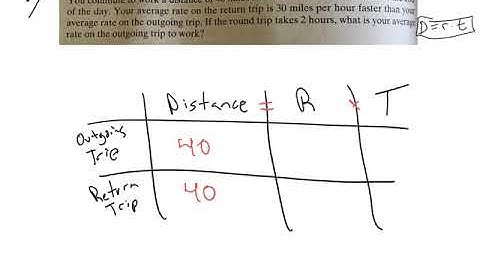 of the day. Your average rate on the return trip is 30 miles per hour faster than your
average rate on the outgoing trip. If the round trip takes 2 hours, what is your average
rate on the outgoing trip to work?
D=r·t
Distance = R × T
Outgoing
Trip
40
Return
Trip
40